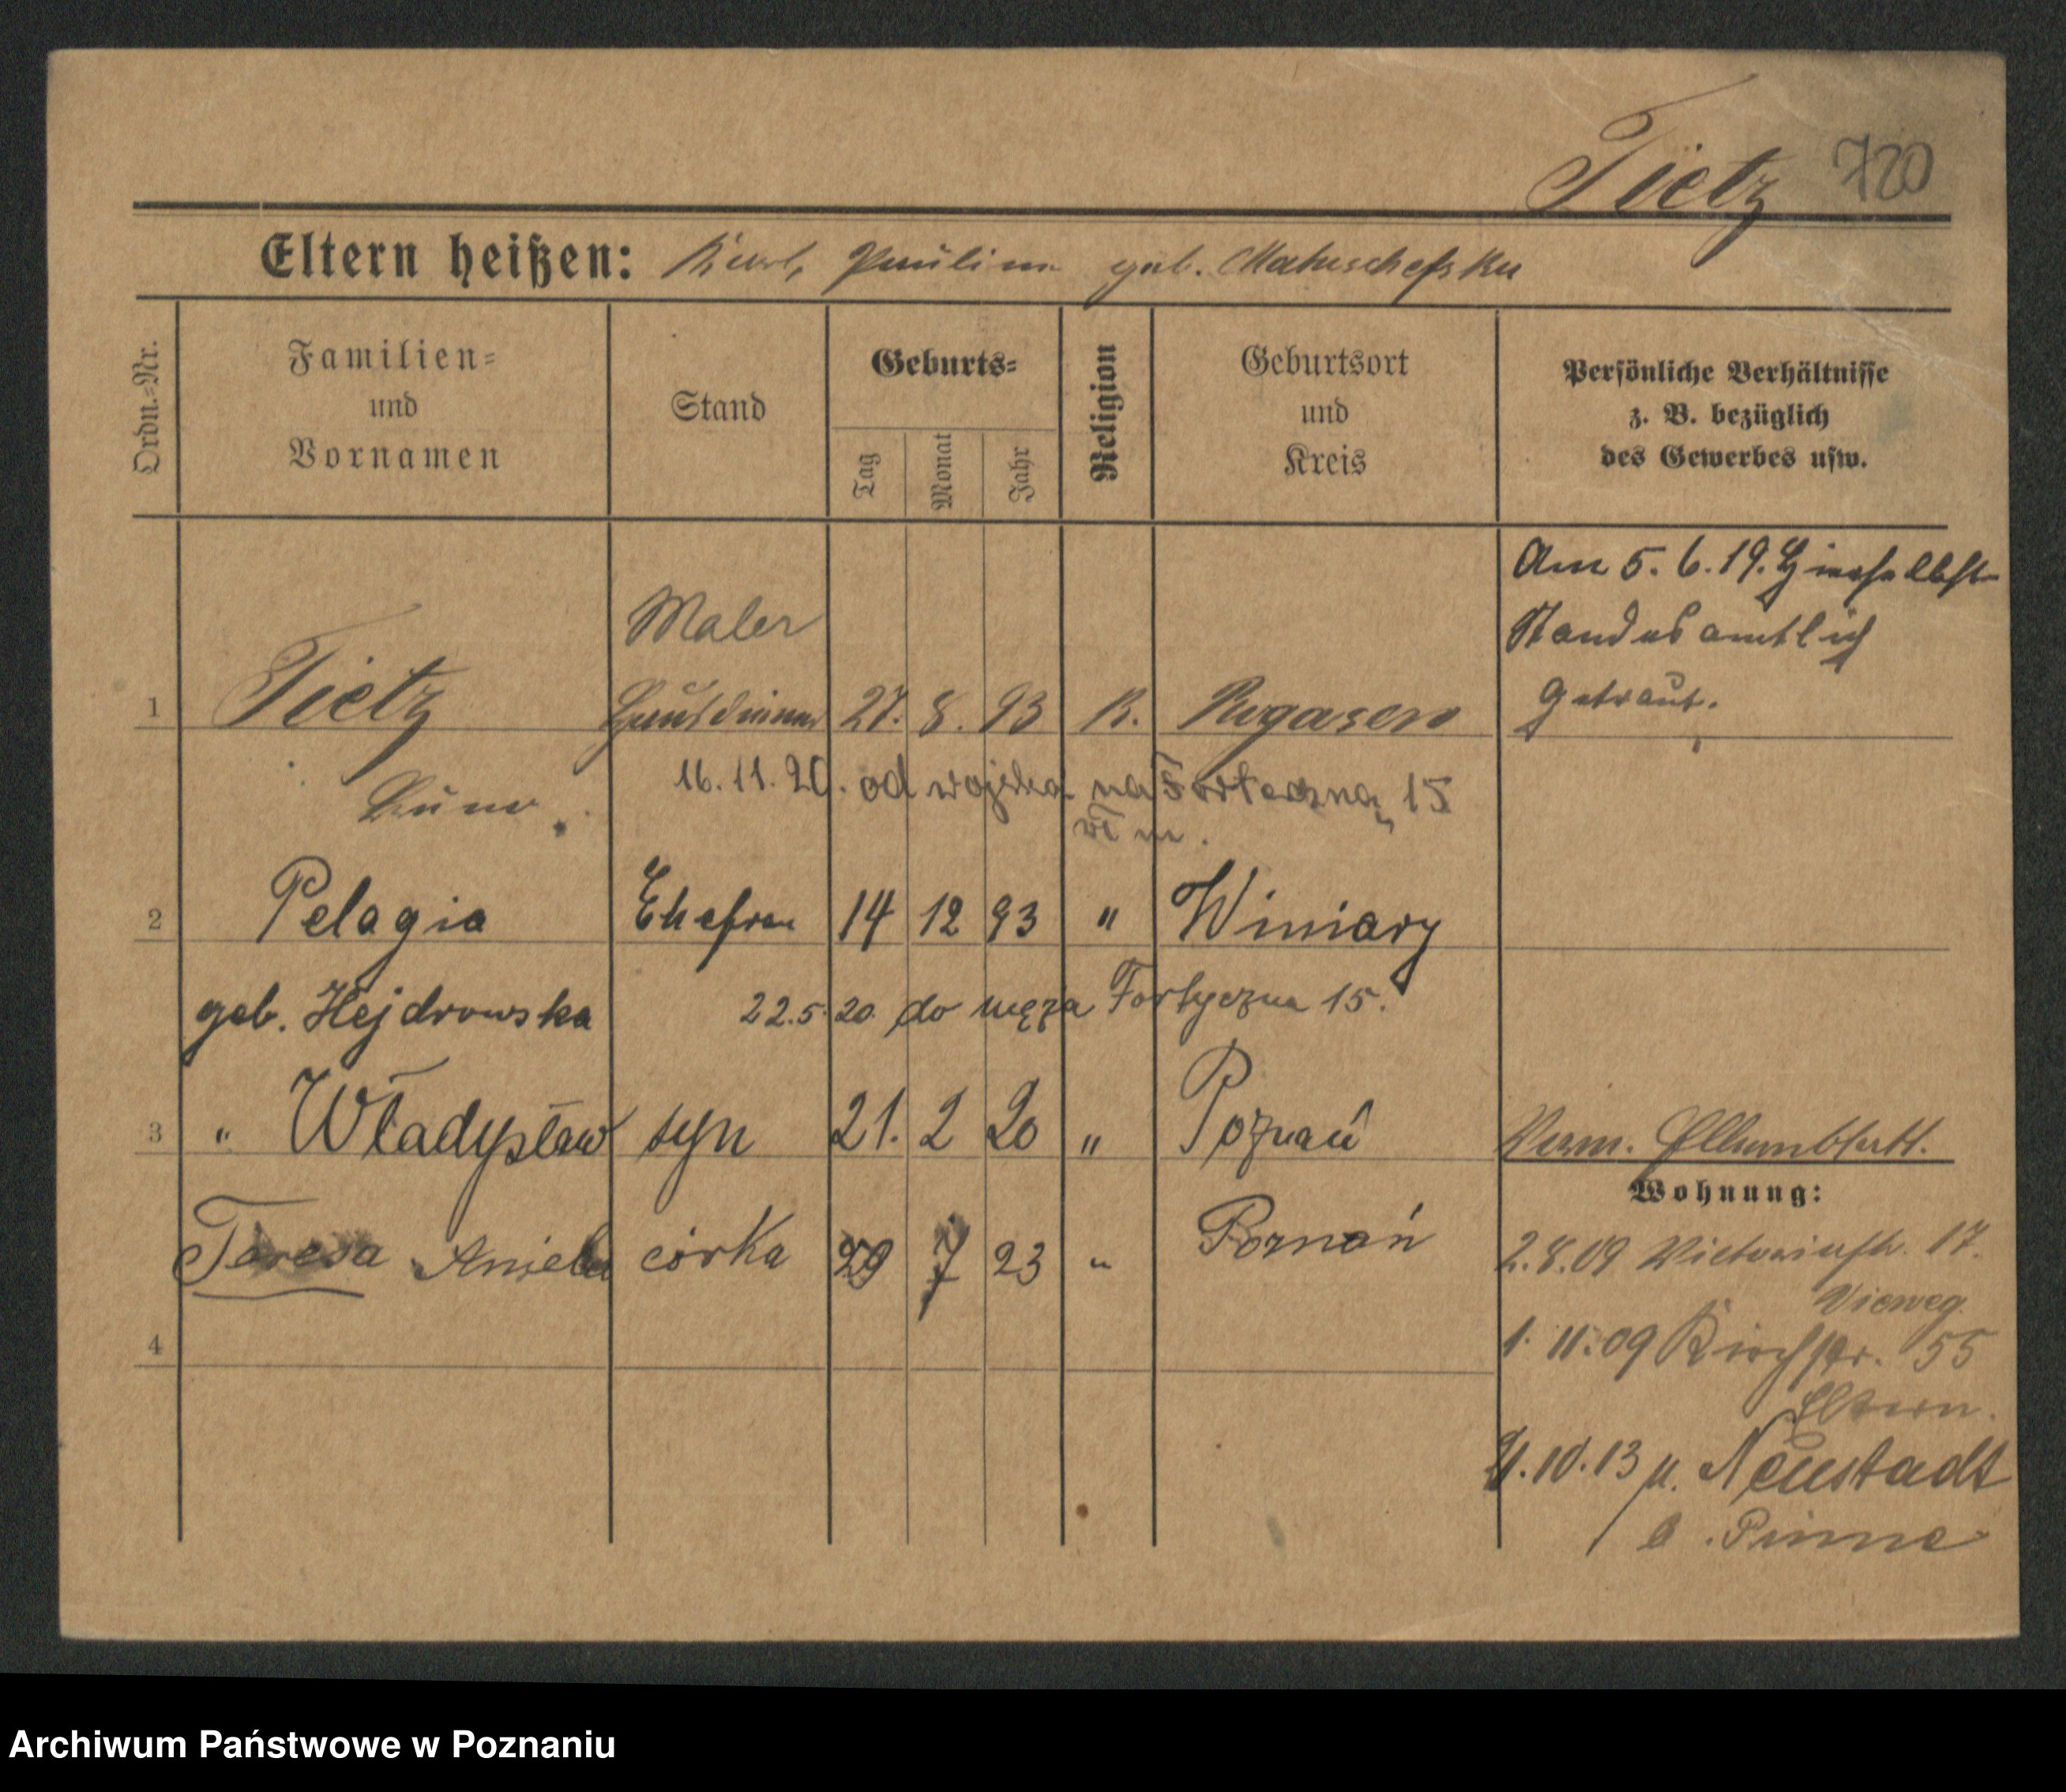 Tietz 720
Eltern heißen: Karl, Paulina geb. Matuschefska
Ordn.-Nr.
Familien-
und
Vornamen
Stand
Geburts-
Tag
Monat
Jahr
Religion
Geburtsort
und
Kreis
Persönliche Verhältnisse
z. B. bezüglich
des Gewerbes usw.
Am 5. 6. 19. Hierselbst
Standesamtlich
getraut.
Maler
1 Tietz Hausdiener 27. 8. 93 K. Rogasen
16. 11. 20. od wojska na Forteczną 15
2 Pelagia Ehefrau 14 12 93 " Winiary
geb. Hejdrowska 22. 5. 20. do męża Fortyczna 15.
3 " Władysław syn 21. 2 20 " Poznań
Verm. Elternblatt.
Wohnung:
Teresa Aniela córka 29 7 23 " Poznań
2. 8. 09 Victoriastr. 17.
Vieweg
4
1. 11. 09 Kirchstr. 55
Eltern.
21. 10. 13 n. Neustadt
b. Pinne
Archiwum Państwowe w Poznaniu